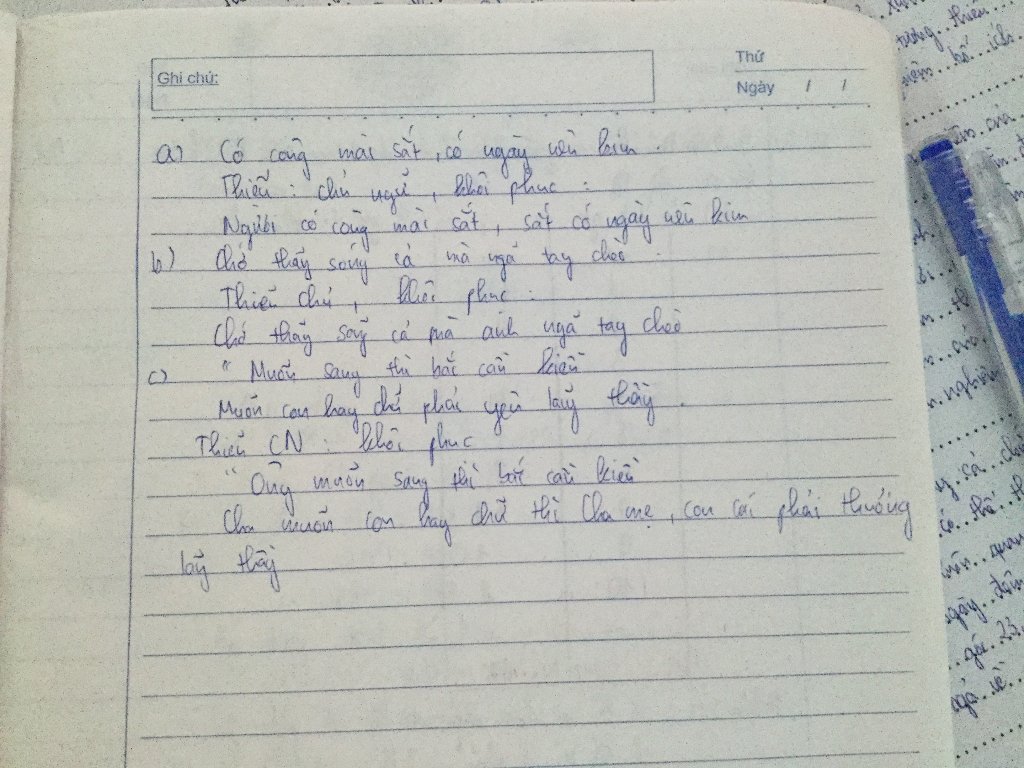 Ghi chú:
Thứ
Ngày / /
a) Có công mài sắt, có ngày nên kim.
Thiếu: chủ ngữ, khôi phục:
Người có công mài sắt, sắt có ngày nên kim
b) Chớ thấy sóng cả mà ngả tay chèo.
Thiếu chủ, khôi phục:
Chớ thấy sóng cả mà anh ngả tay chèo
c) "Muốn sang thì bắc cầu kiều
Muốn con hay chữ phải yêu lấy thầy.
Thiếu CN: khôi phục
"Ông muốn sang thì bắc cầu kiều
Cha muốn con hay chữ thì Cha mẹ, con cái phải thương
lấy thầy